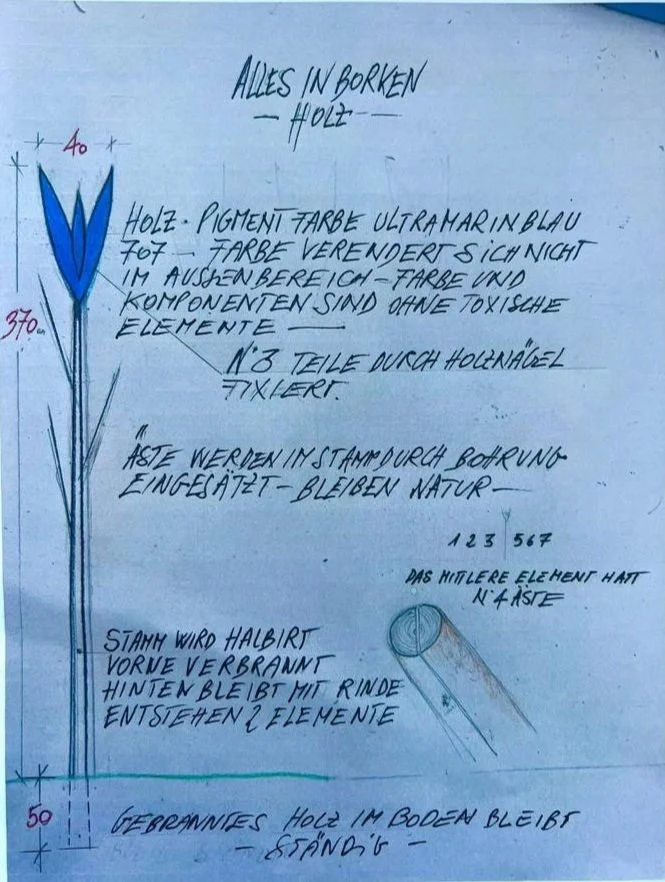 ALLES IN BORKEN
— HOLZ —
40
HOLZ - PIGMENT FARBE ULTRAMARINBLAU
707 — FARBE VERENDERT SICH NICHT
IM AUSSENBEREICH - FARBE UND
KOMPONENTEN SIND OHNE TOXISCHE
ELEMENTE —
370
N°3 TEILE DURCH HOLZNÄGEL
FIXIERT.
ÄSTE WERDEN IM STAMM DURCH BOHRUNG
EINGESÄTZT — BLEIBEN NATUR —
1 2 3 5 6 7
DAS MITTLERE ELEMENT HATT
N°4 ÄSTE
STAMM WIRD HALBIRT
VORNE VERBRANNT
HINTEN BLEIBT MIT RINDE
ENTSTEHEN 2 ELEMENTE
50
GEBRANNTES HOLZ IM BODEN BLEIBT
— STÄNDIG —